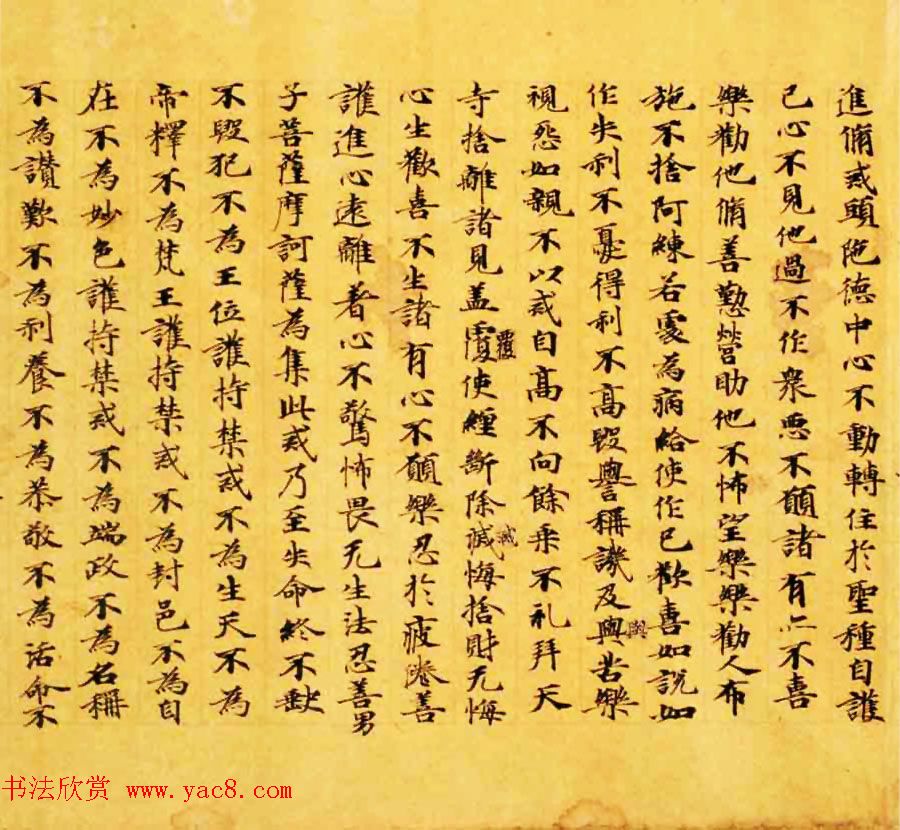 進脩戒頭陁德中心不動轉住於聖種自護
己心不見他過不作衆惡不願諸有亦不喜
樂勸他脩善懃營助他不怖望樂樂勸人布
施不捨阿練若處為病給使作已歡喜如說如
作失利不憂得利不高毀譽稱譏及與苦樂
與
視怨如親不以戒自高不向餘乘不礼拜天
寺捨離諸見盖覆使纏斷除滅悔捨財无悔
覆
滅
心生歡喜不生諸有心不願樂忍於疲惓善
護進心遠離著心不驚怖畏无生法忍善男
子菩薩摩訶薩為集此戒乃至失命終不缺
不毀犯不為王位護持禁戒不為生天不為
帝釋不為梵王護持禁戒不為封邑不為自
在不為妙色護持禁戒不為端政不為名稱
不為讚歎不為利養不為恭敬不為活命不
书法欣赏 www.yac8.com